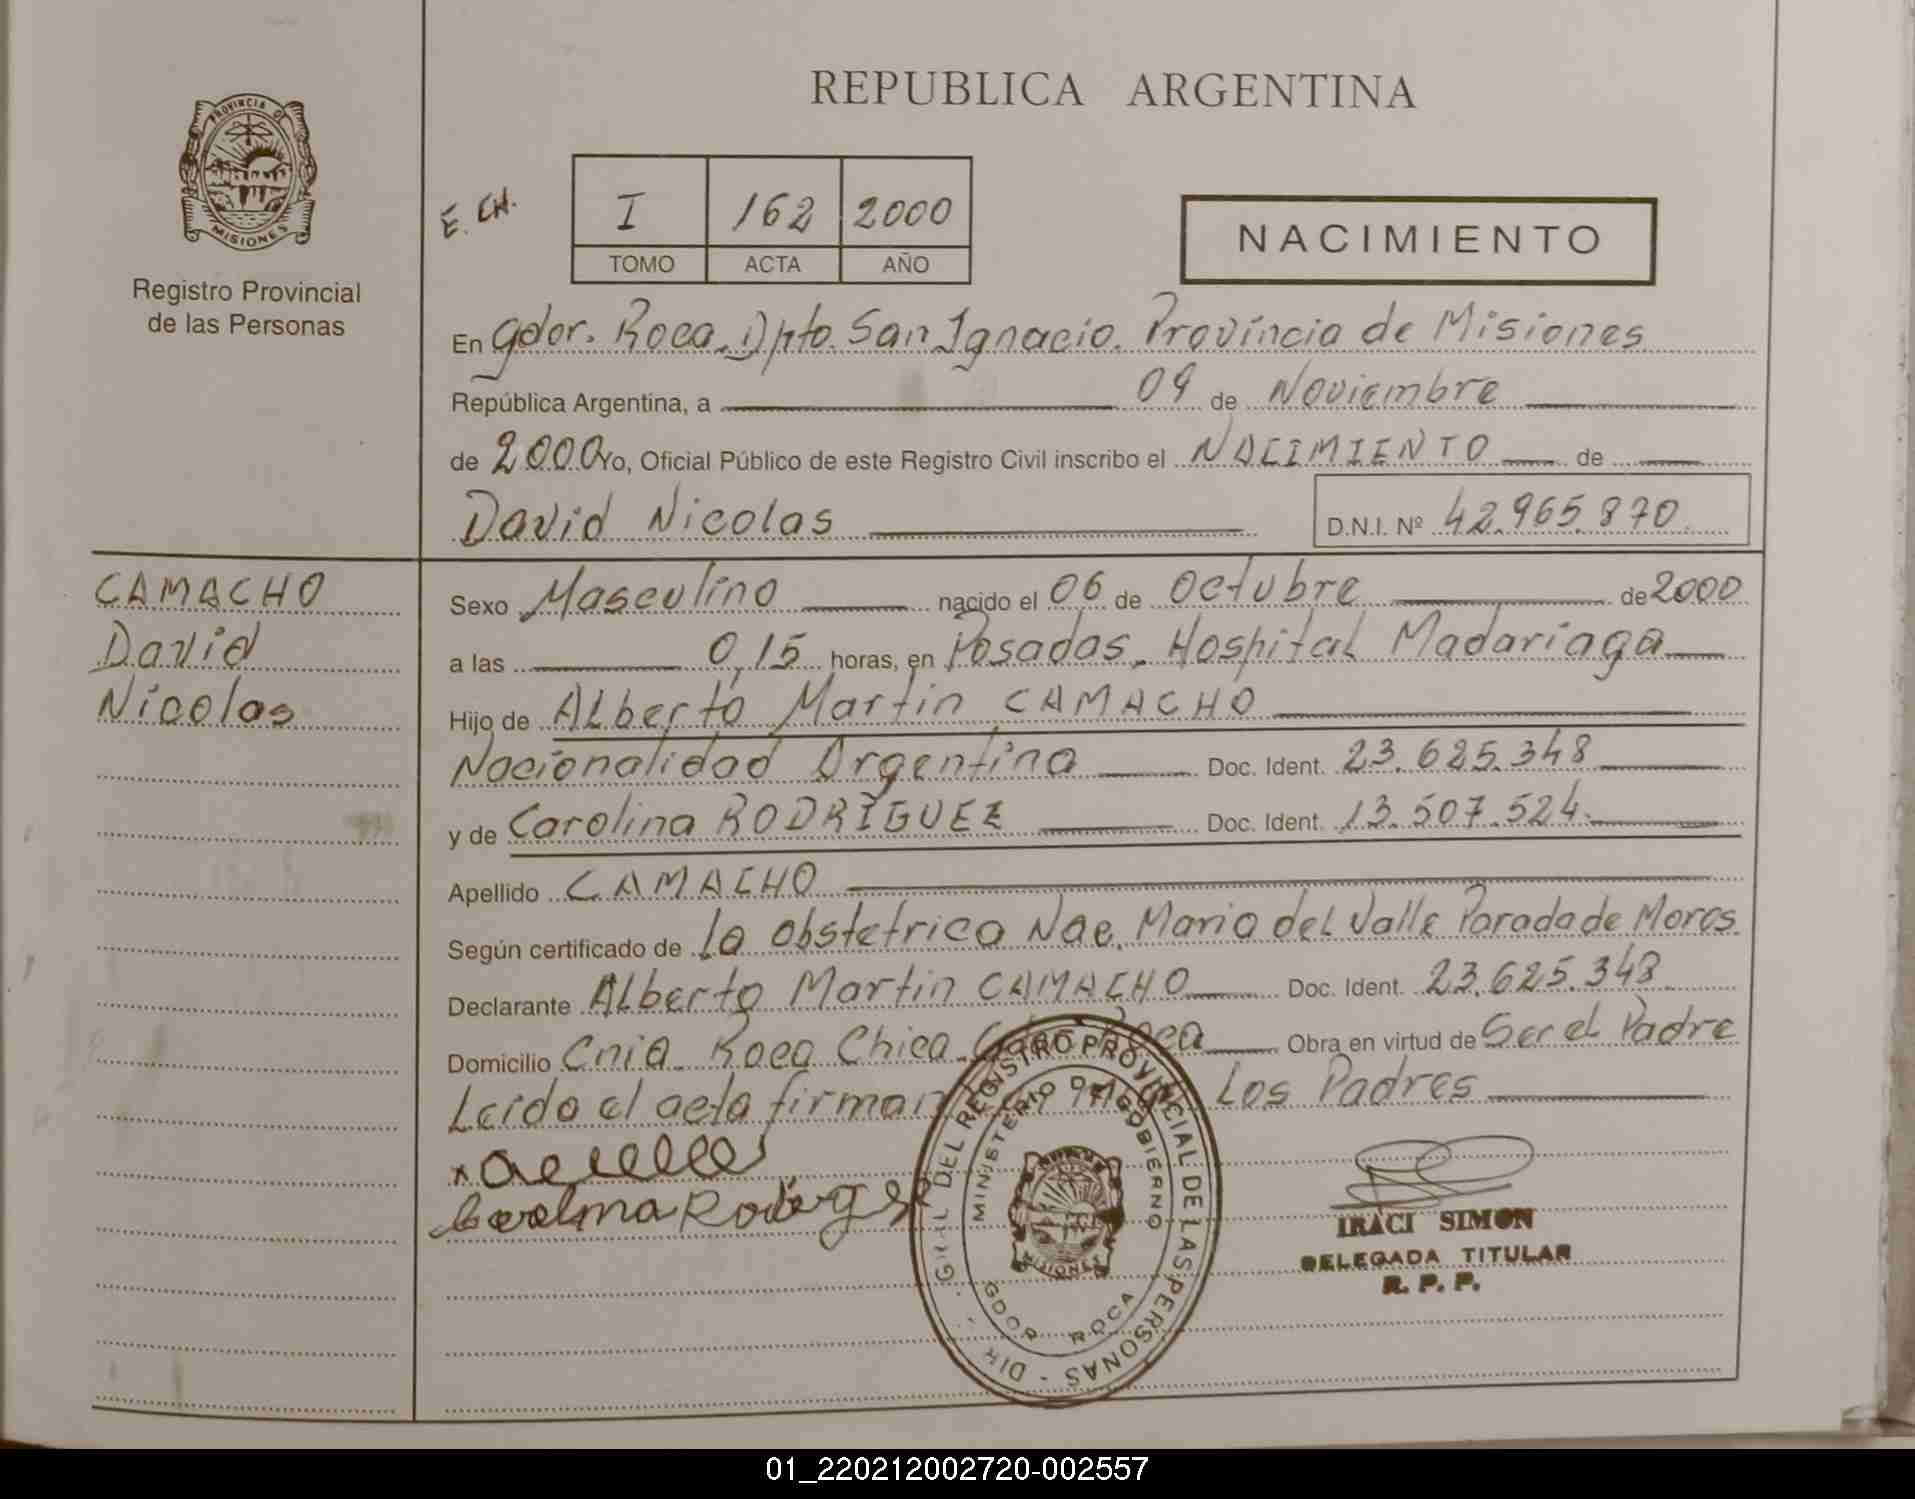 REPUBLICA ARGENTINA
PROVINCIA D
MISIONES
Registro Provincial
de las Personas
E. CH.
I 162 2000
TOMO ACTA AÑO
NACIMIENTO
En Gdor. Roca. Dpto. San Ignacio. Provincia de Misiones
República Argentina, a 09 de Noviembre
de 2000 Yo, Oficial Público de este Registro Civil inscribo el NACIMIENTO de
David Nicolas D.N.I. Nº 42.965.870
CAMACHO
David
Nicolas
Sexo Masculino nacido el 06 de Octubre de 2000
a las 0,15 horas, en Posadas. Hospital Madariaga
Hijo de Alberto Martin CAMACHO
Nacionalidad Argentina Doc. Ident. 23.625.348
y de Carolina RODRIGUEZ Doc. Ident. 13.507.524
Apellido CAMACHO
Según certificado de La Obstetrica Nac. Maria del Valle Parada de Moros
Declarante Alberto Martin CAMACHO Doc. Ident. 23.625.348
Domicilio Cnia. Roca Chica. Roca Obra en virtud de Ser el Padre
Leido el acta firman Los Padres
DIR. GRAL DEL REGISTRO PROVINCIAL DE LAS PERSONAS
MINISTERIO DE GOBIERNO
MISIONES
GDOR ROCA
IRACI SIMON
DELEGADA TITULAR
R. P. P.
01_220212002720-002557